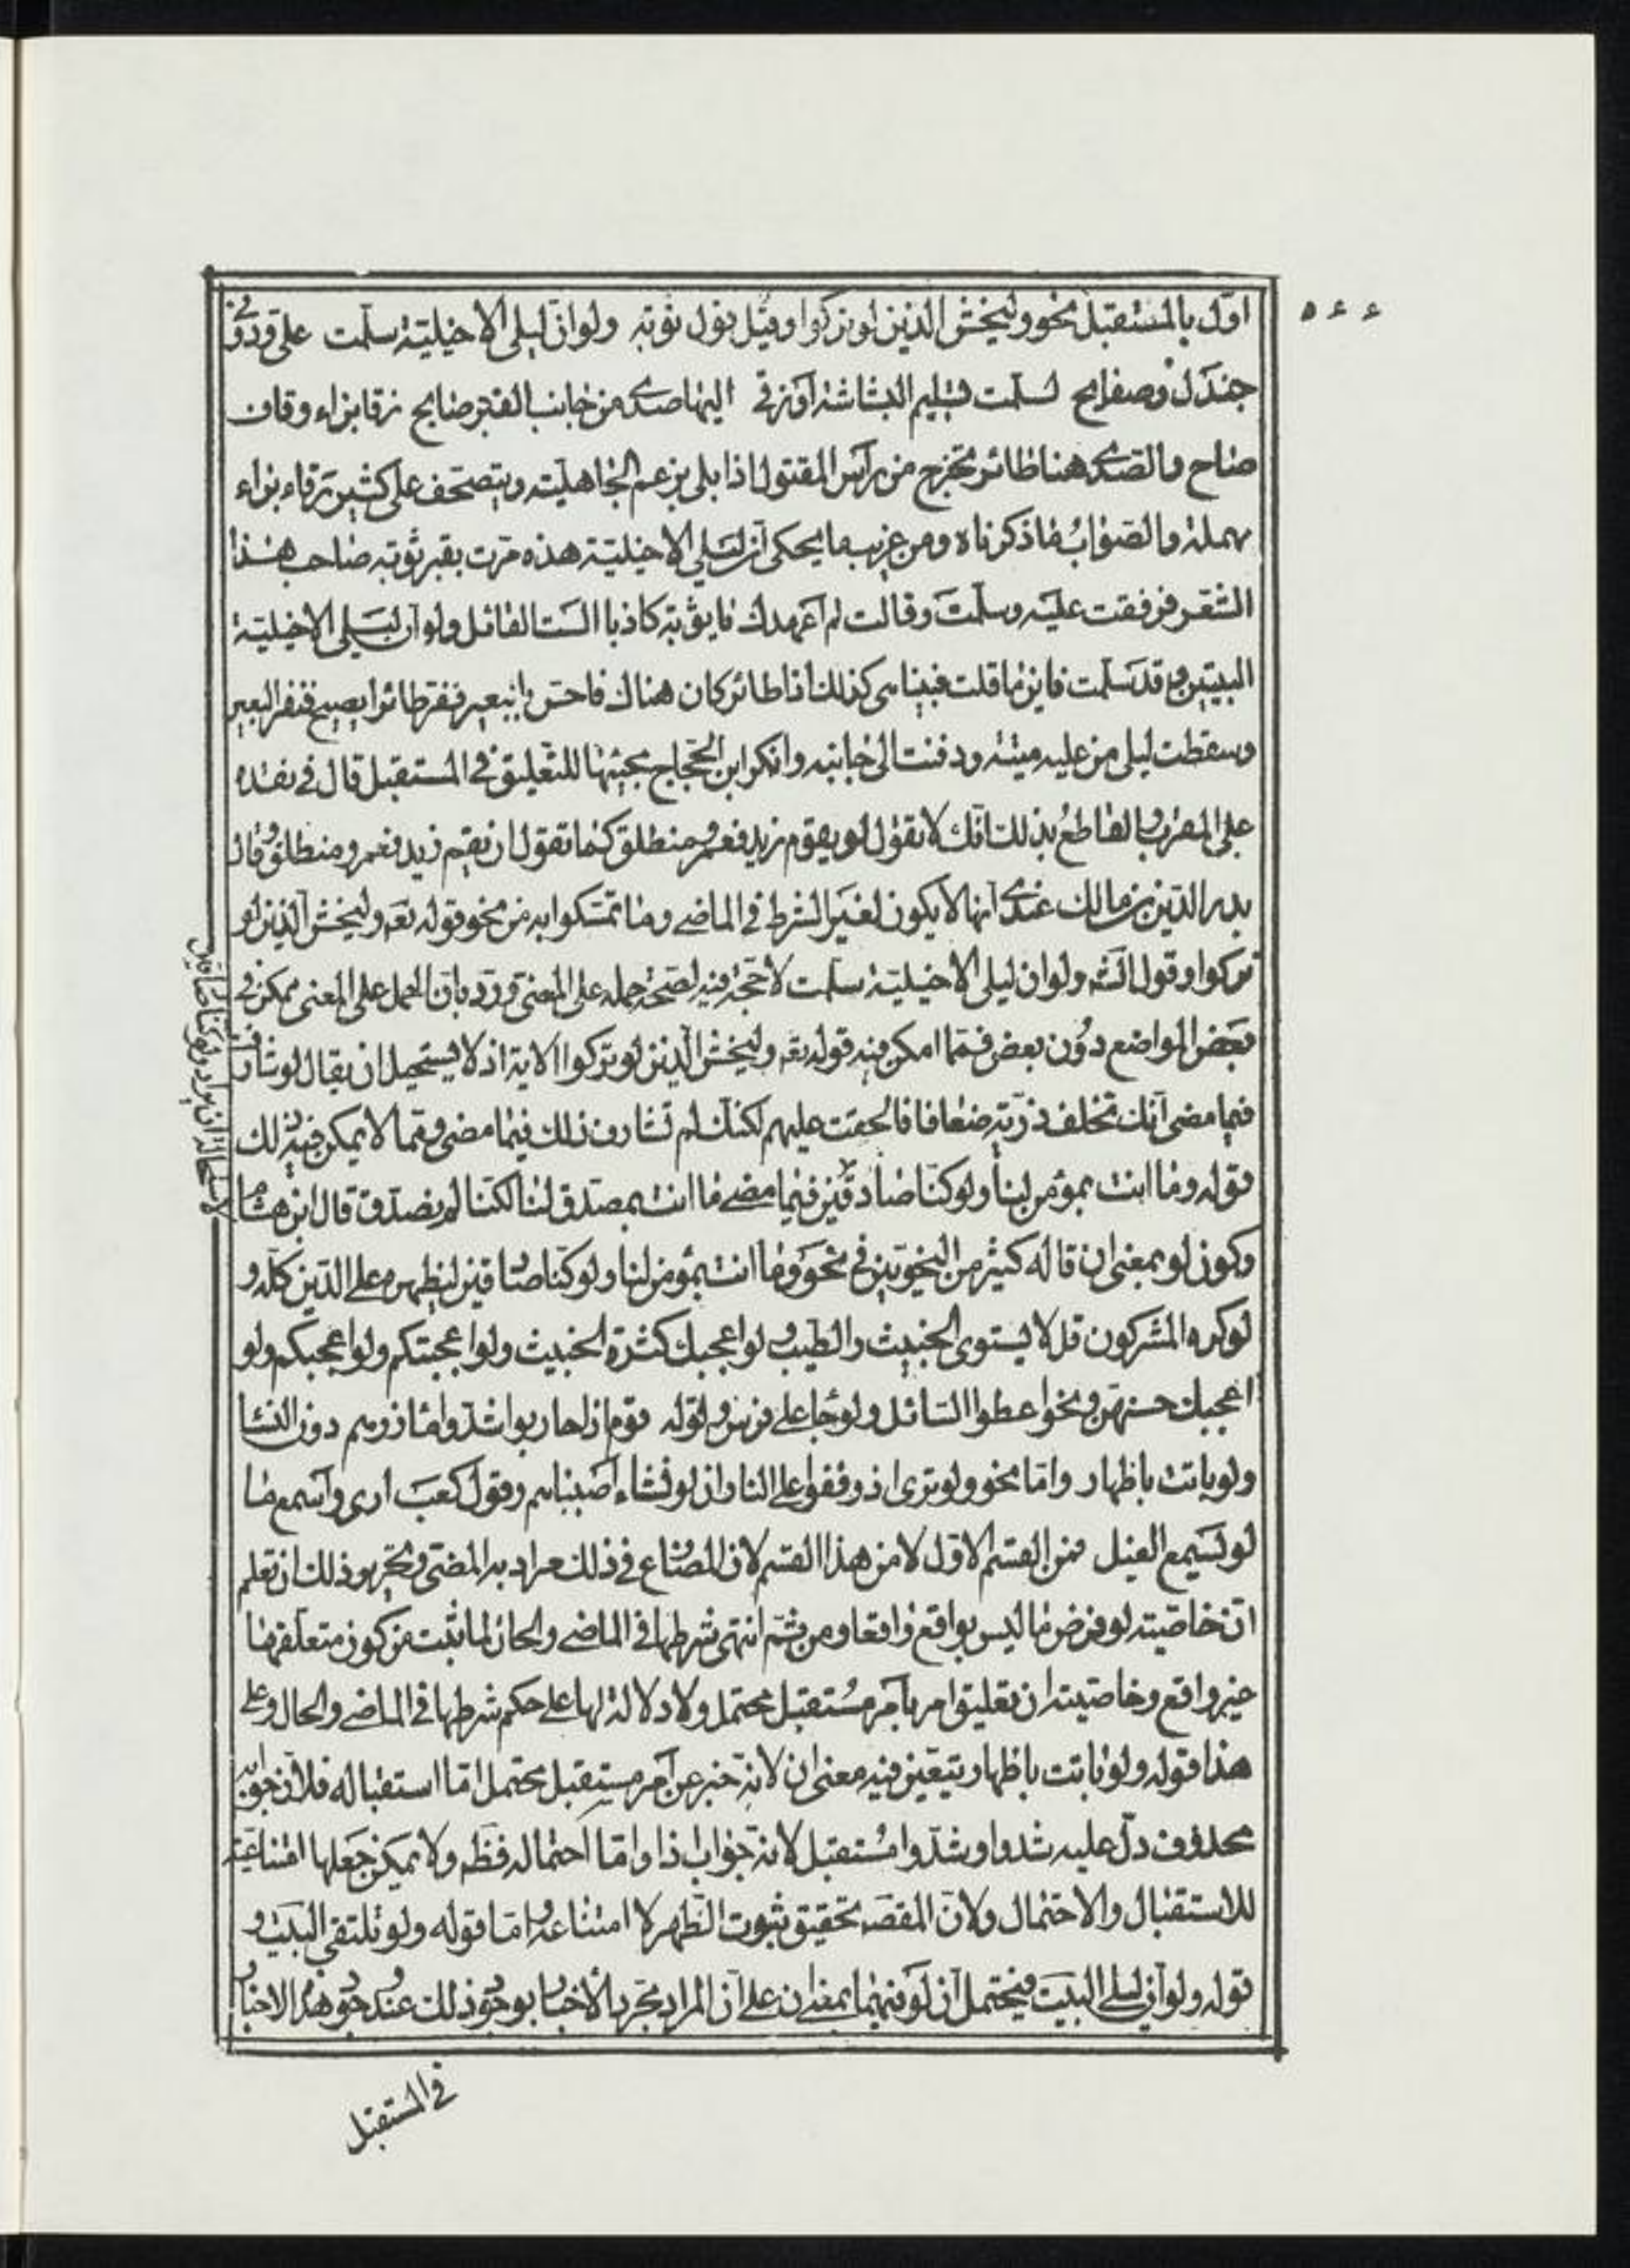 ٥٤٤
اوّل بالمستقبل نحو وليخش الذين لو تركوا وقيل بقول توبه ولو ان ليلى الاخيليّة سلّمت علىّ ودونى
جندل وصفايح لسلّمت تسليم البشاشة او زقى اليها صدى من جانب القبر صايح زقا بزاء وقاف
صاح والصدى هنا طائر تخرج من رأس المقتول اذا بلى بزعم الجاهليّة ويتصحّف على كثيرين رقاء براء
مهملة والصواب ما ذكرناه ومن غريب ما يحكى ان ليلى الاخيليّة هذه مرّت بقبر توبة صاحب هذا
الشعر فوقفت عليه وسلّمت وقالت لم اعهدك يا توبة كاذبا الست القائل ولو ان ليلى الاخيليّة
البيتين وقد سلّمت فاين ما قلت فبينا هى كذلك اذا طائر كان هناك فاحسّ بالبعير ففر طائرا يصيح فنفر البعير
وسقطت ليلى من عليه ميّتة ودفنت الى جانبه وانكر ابن الحجّاج مجيئها للتعليق فى المستقبل قال فى نقده
على المقرب والقاطع بذلك انّك لا تقول لو يقوم زيد فعمرو منطلق كما تقول ان يقم زيد فعمرو منطلق وقال
بدر الدّين بن مالك عندى انها لا يكون لغير الشرط فى الماضى وما تمسّكوا به من نحو قوله تعه وليخش الذين لو
تركوا وقول الشه ولو ان ليلى الاخيليّة سلّمت لا حجّة فيه لصحّة حمله على المعنى وردّ بان الحمل على المعنى ممكن فى
بعض المواضع دون بعض فممّا امكن فيه قوله تعه وليخش الّذين لو تركوا الاية اذ لا يستحيل ان يقال لو شارفت
فيما مضى انّك تخلف ذرّيّة ضعافا لخفت عليهم لكنّك لم تشارف ذلك فيما مضى وممّا لا يمكن فيه ذلك
قوله وما انت بمؤمن لنا ولو كنّا صادقين فيما مضى ما انت بمصدق لنا لكنّنا لم نصدق قال ابن هشام
وكون لو بمعنى ان قاله كثير من النحويّين فى نحو وما انت بمؤمن لنا ولو كنّا صادقين ليظهره على الدّين كلّه و
لو كره المشركون قل لا يستوى الخبيث والطيب ولو اعجبك كثرة الخبيث ولو اعجبتكم ولو اعجبكم ولو
اعجبك حسنهن ونحو اعطوا السائل ولو جاء على فرس وقوله قوم اذا حاربوا شدّوا مازرهم دون النساء
ولو باتت باظهار وامّا نحو ولو ترى اذ وقفوا على النار وان لو نشاء اصبناهم وقول كعب ارى واسمع ما
لو يسمع الفيل فمن القسم الاوّل لا من هذا القسم لان المضارع فى ذلك مراد به المضى وتحريره ذلك ان تعلم
انّ خاصّيّة لو فرض ما ليس بواقع واقعا ومن ثمّ انتفى شرطها فى الماضى والحال لما ثبت من كون متعلّقها
غير واقع وخاصيّة ان تعليق امر بامر مستقبل محتمل ولا دلالة لها على حكم شرطها فى الماضى والحال وعلى
هذا قوله ولو باتت باظهار يتعيّن فيه معنى ان لانّه خبر عن امر مستقبل محتمل امّا استقباله فلان جوابه
محذوف دلّ عليه شدوا وشدّوا مستقبل لانه جواب اذا وامّا احتماله فظه ولا يمكن جعلها امتناعيّة
للاستقبال والاحتمال ولان المقصّ تحقيق ثبوت الطهر لا امتناعه وامّا قوله ولو تلتقى البيت و
قوله ولو ان ليلى البيت فيحتمل ان لو فيهما بمعنى ان على ان المراد مجرّد الأخبار بوجود ذلك عند وجود هذه الاخبار
فى المستقبل